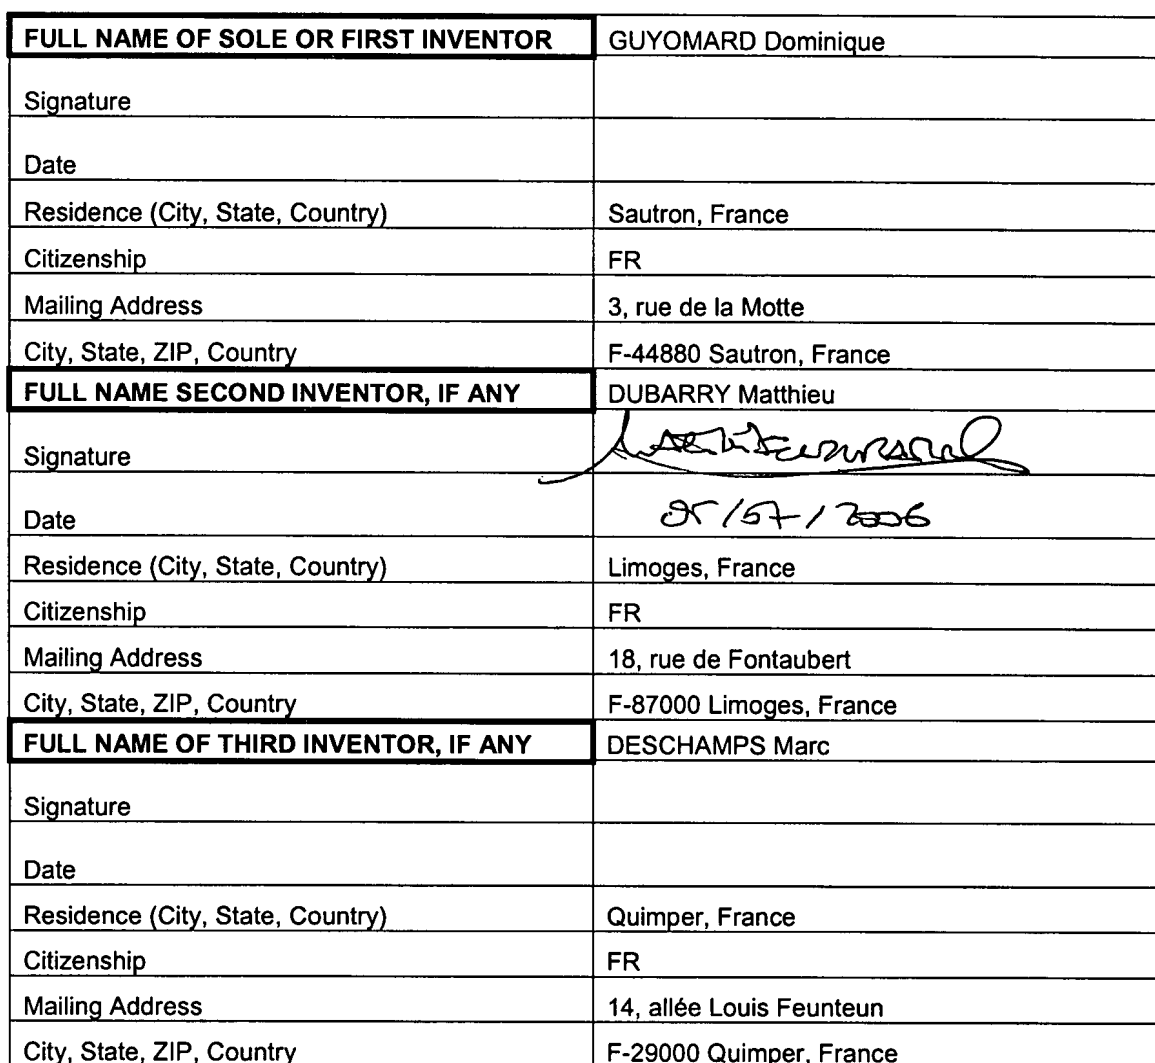 FULL NAME OF SOLE OR FIRST INVENTOR GUYOMARD Dominique
Signature
Date
Residence (City, State, Country) Sautron, France
Citizenship FR
Mailing Address 3, rue de la Motte
City, State, ZIP, Country F-44880 Sautron, France
FULL NAME SECOND INVENTOR, IF ANY DUBARRY Matthieu
Signature
Date
Residence (City, State, Country) Limoges, France
Citizenship FR
Mailing Address 18, rue de Fontaubert
City, State, ZIP, Country F-87000 Limoges, France
FULL NAME OF THIRD INVENTOR, IF ANY DESCHAMPS Marc
Signature
Date
Residence (City, State, Country) Quimper, France
Citizenship FR
Mailing Address 14, allée Louis Feunteun
City, State, ZIP, Country F-29000 Quimper, France